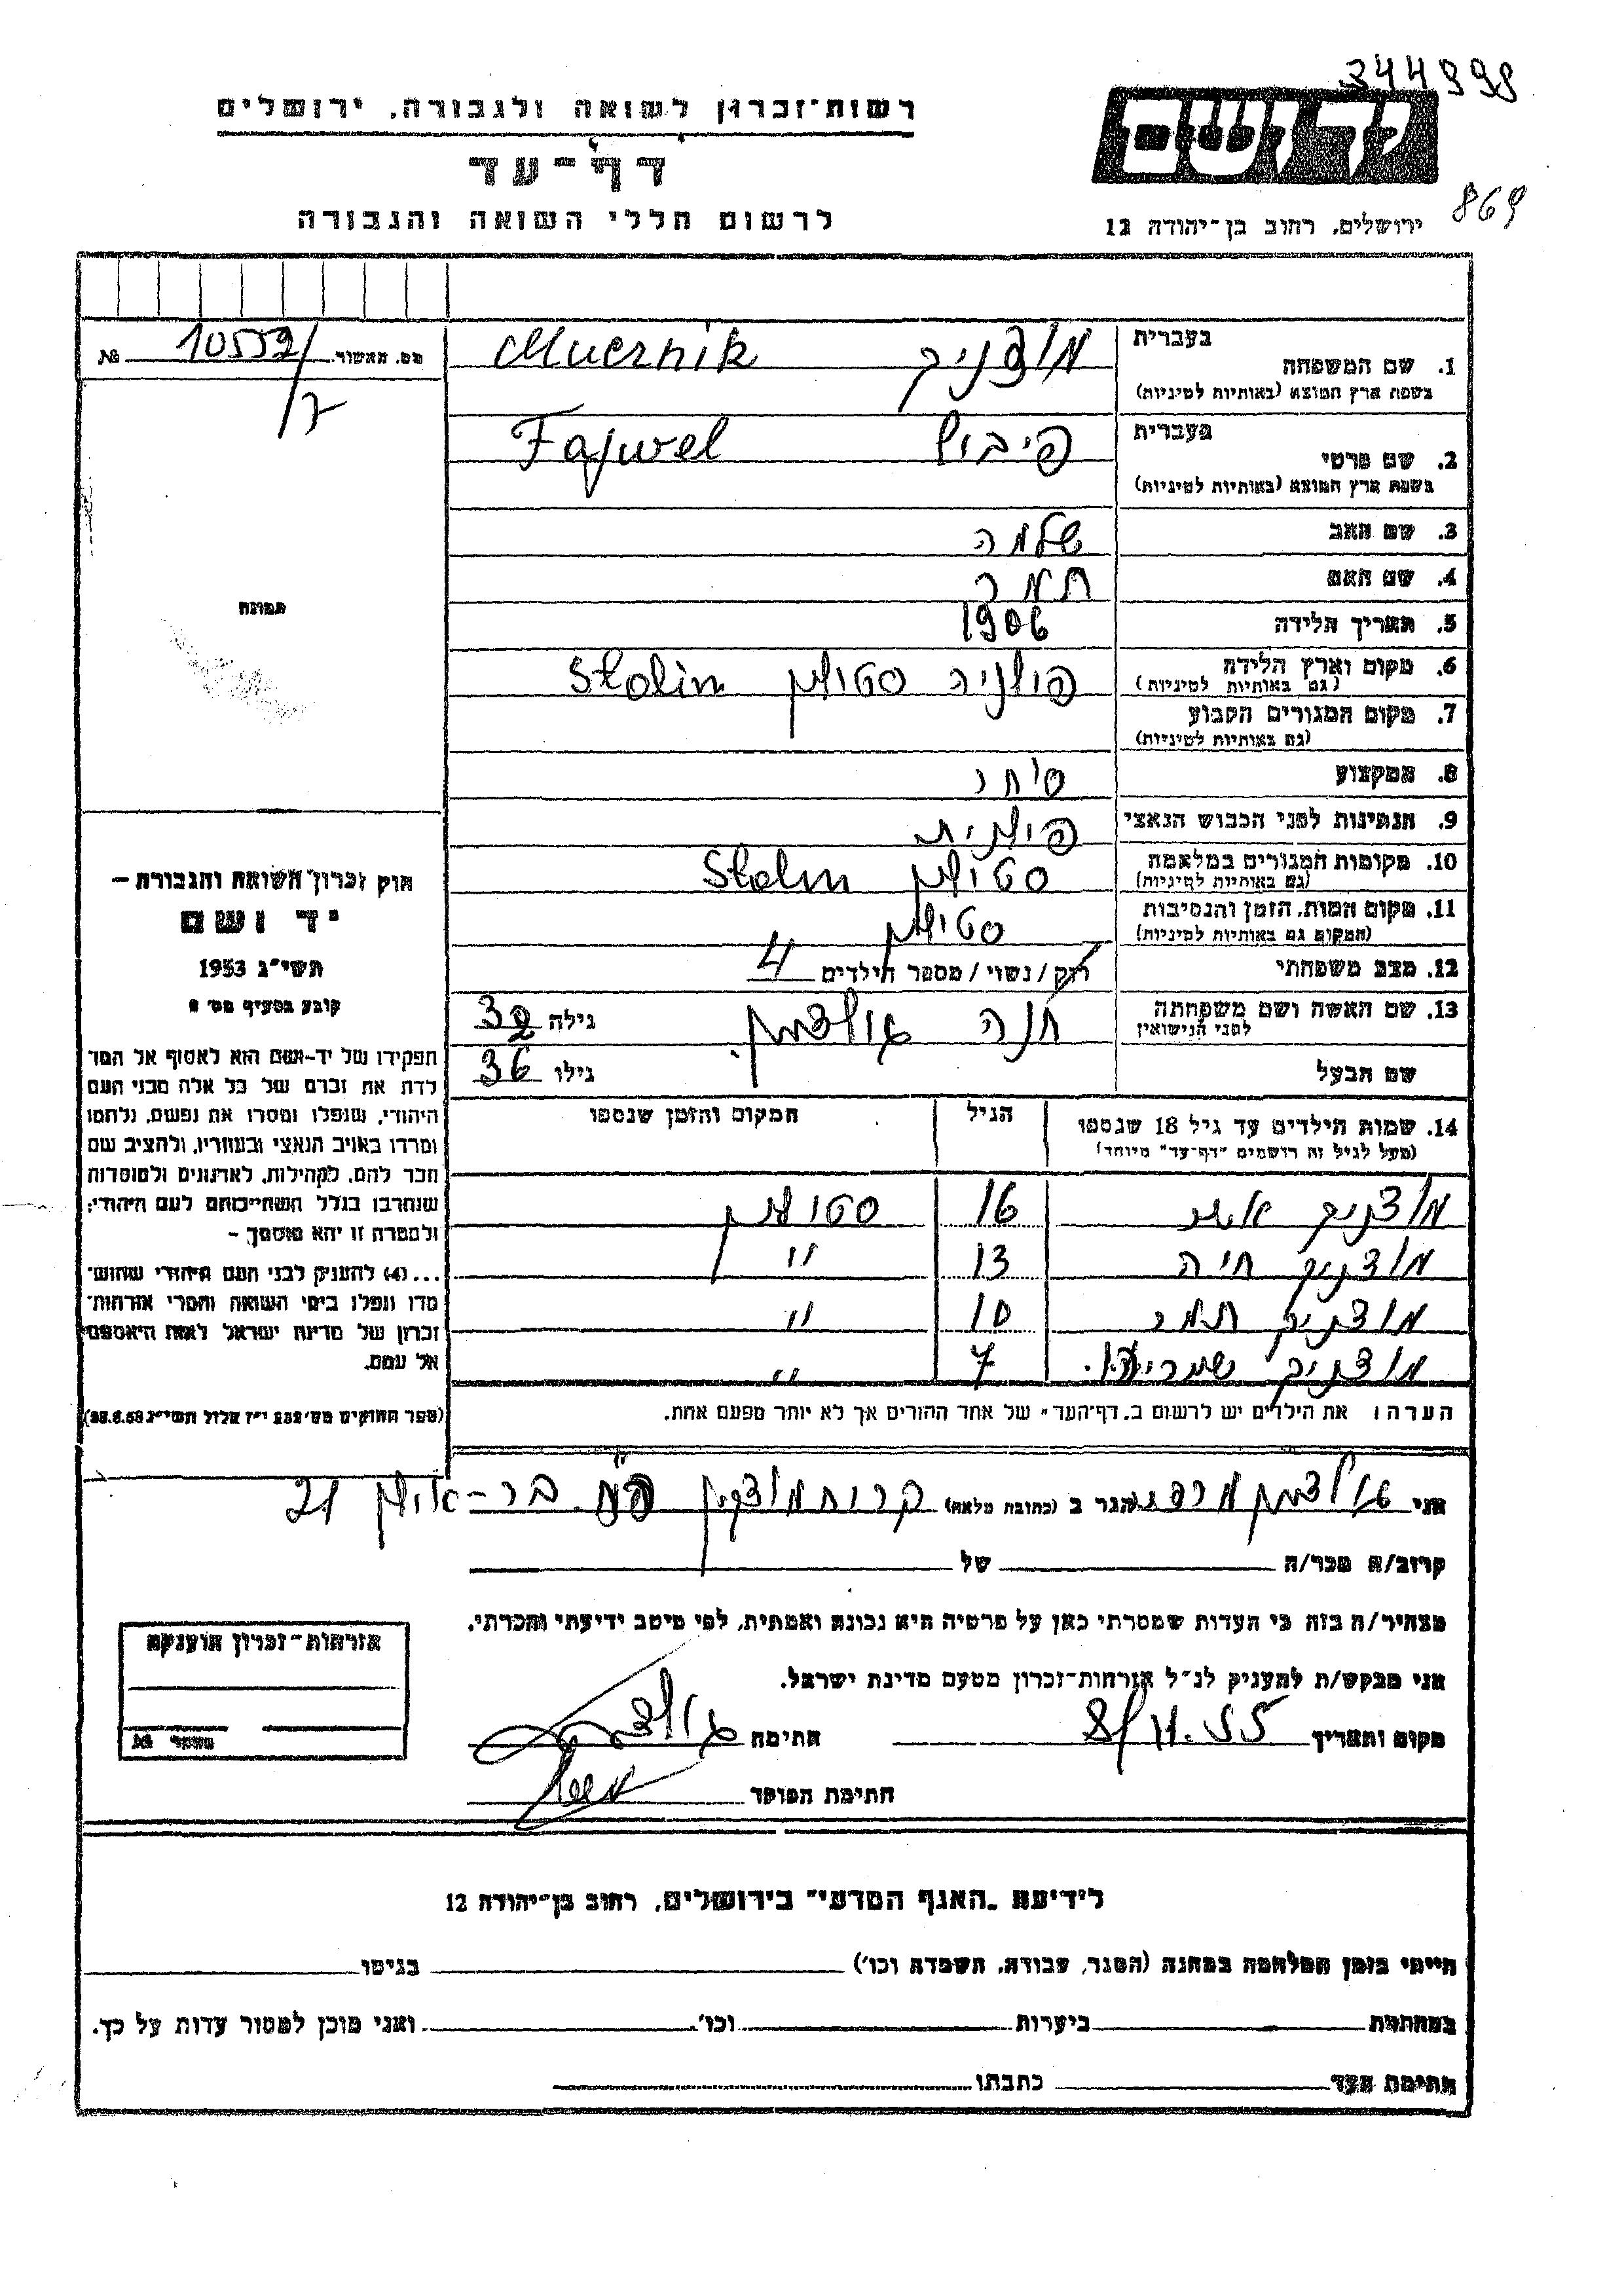 344998
רשות־זכרון לשואה ולגבורה, ירושלים
דף־עד
לרשום חללי השואה והגבורה
יד ושם
869
ירושלים, רחוב בן־יהודה 12
מס. האשור 10552/7 №
בעברית
1. שם המשפחה
בשפת ארץ המוצא (באותיות לטיניות)
מוצניק Mucznik
בעברית
2. שם פרטי
בשפת ארץ המוצא (באותיות לטיניות)
פיבול Fajwel
3. שם האב שלמה
4. שם האם תמר
5. תאריך הלידה 1906
6. מקום וארץ הלידה
(גם באותיות לטיניות)
פולניה סטולין Stolin
7. מקום המגורים הקבוע
(גם באותיות לטיניות)
8. המקצוע סוחר
9. הנתינות לפני הכבוש הנאצי פולנית
10. מקומות המגורים במלחמה
(גם באותיות לטיניות)
סטולין Stolin
11. מקום המות, הזמן והנסיבות
(המקום גם באותיות לטיניות)
סטולין
12. מצב משפחתי רוק / נשוי / מספר הילדים 4
13. שם האשה ושם משפחתה
לפני הנישואין
חנה גולדמן. גילה 32
שם הבעל גילו 36
14. שמות הילדים עד גיל 18 שנספו
(מעל לגיל זה רושמים "דף־עד" מיוחד)
הגיל
המקום והזמן שנספו
מוצניק אשר 16 סטולין
מוצניק חיה 13 "
מוצניק תמר 10 "
מוצניק שמריהו. 7 "
הערה: את הילדים יש לרשום ב„דף־העד" של אחד ההורים אך לא יותר מפעם אחת.
תמונה
חוק זכרון השואה והגבורה –
יד ושם
תשי"ג 1953
קובע בסעיף מס' 2
תפקידו של יד־ושם הוא לאסוף אל המו־
לדת את זכרם של כל אלה מבני העם
היהודי, שנפלו ומסרו את נפשם, נלחמו
ומרדו באויב הנאצי ובעוזריו, ולהציב שם
וזכר להם, לקהילות, לארגונים ולמוסדות
שנחרבו בגלל השתייכותם לעם היהודי;
ולמטרה זו יהא מוסמך –
...(4) להעניק לבני העם היהודי שהוש־
מדו ונפלו בימי השואה והמרי אזרחות־
זכרון של מדינת ישראל לאות היאספם
אל עמם.
(ספר החוקים מס' 132 י"ז אלול תשי"ג 28.8.53)
אני גולדמן מרדכי הגר ב (כתובת מלאה) קרית מוצקין בר־אילן 21
קרוב/ה מכר/ה של
מצהיר/ה בזה כי העדות שמסרתי כאן על פרטיה היא נכונה ואמתית, לפי מיטב ידיעתי והכרתי.
אני מבקש/ת להעניק לנ"ל אזרחות־זכרון מטעם מדינת ישראל.
מקום ותאריך 8/11.55 חתימה
חתימת הפוקד
אזרחות־זכרון הוענקה
מספר №
לידיעת „האגף המדעי" בירושלים, רחוב בן־יהודה 12
הייתי בזמן המלחמה במחנה (הסגר, עבודה, השמדה וכו') בגיטו
במחתרת ביערות וכו'. ואני מוכן למסור עדות על כך.
חתימת העד כתבתו